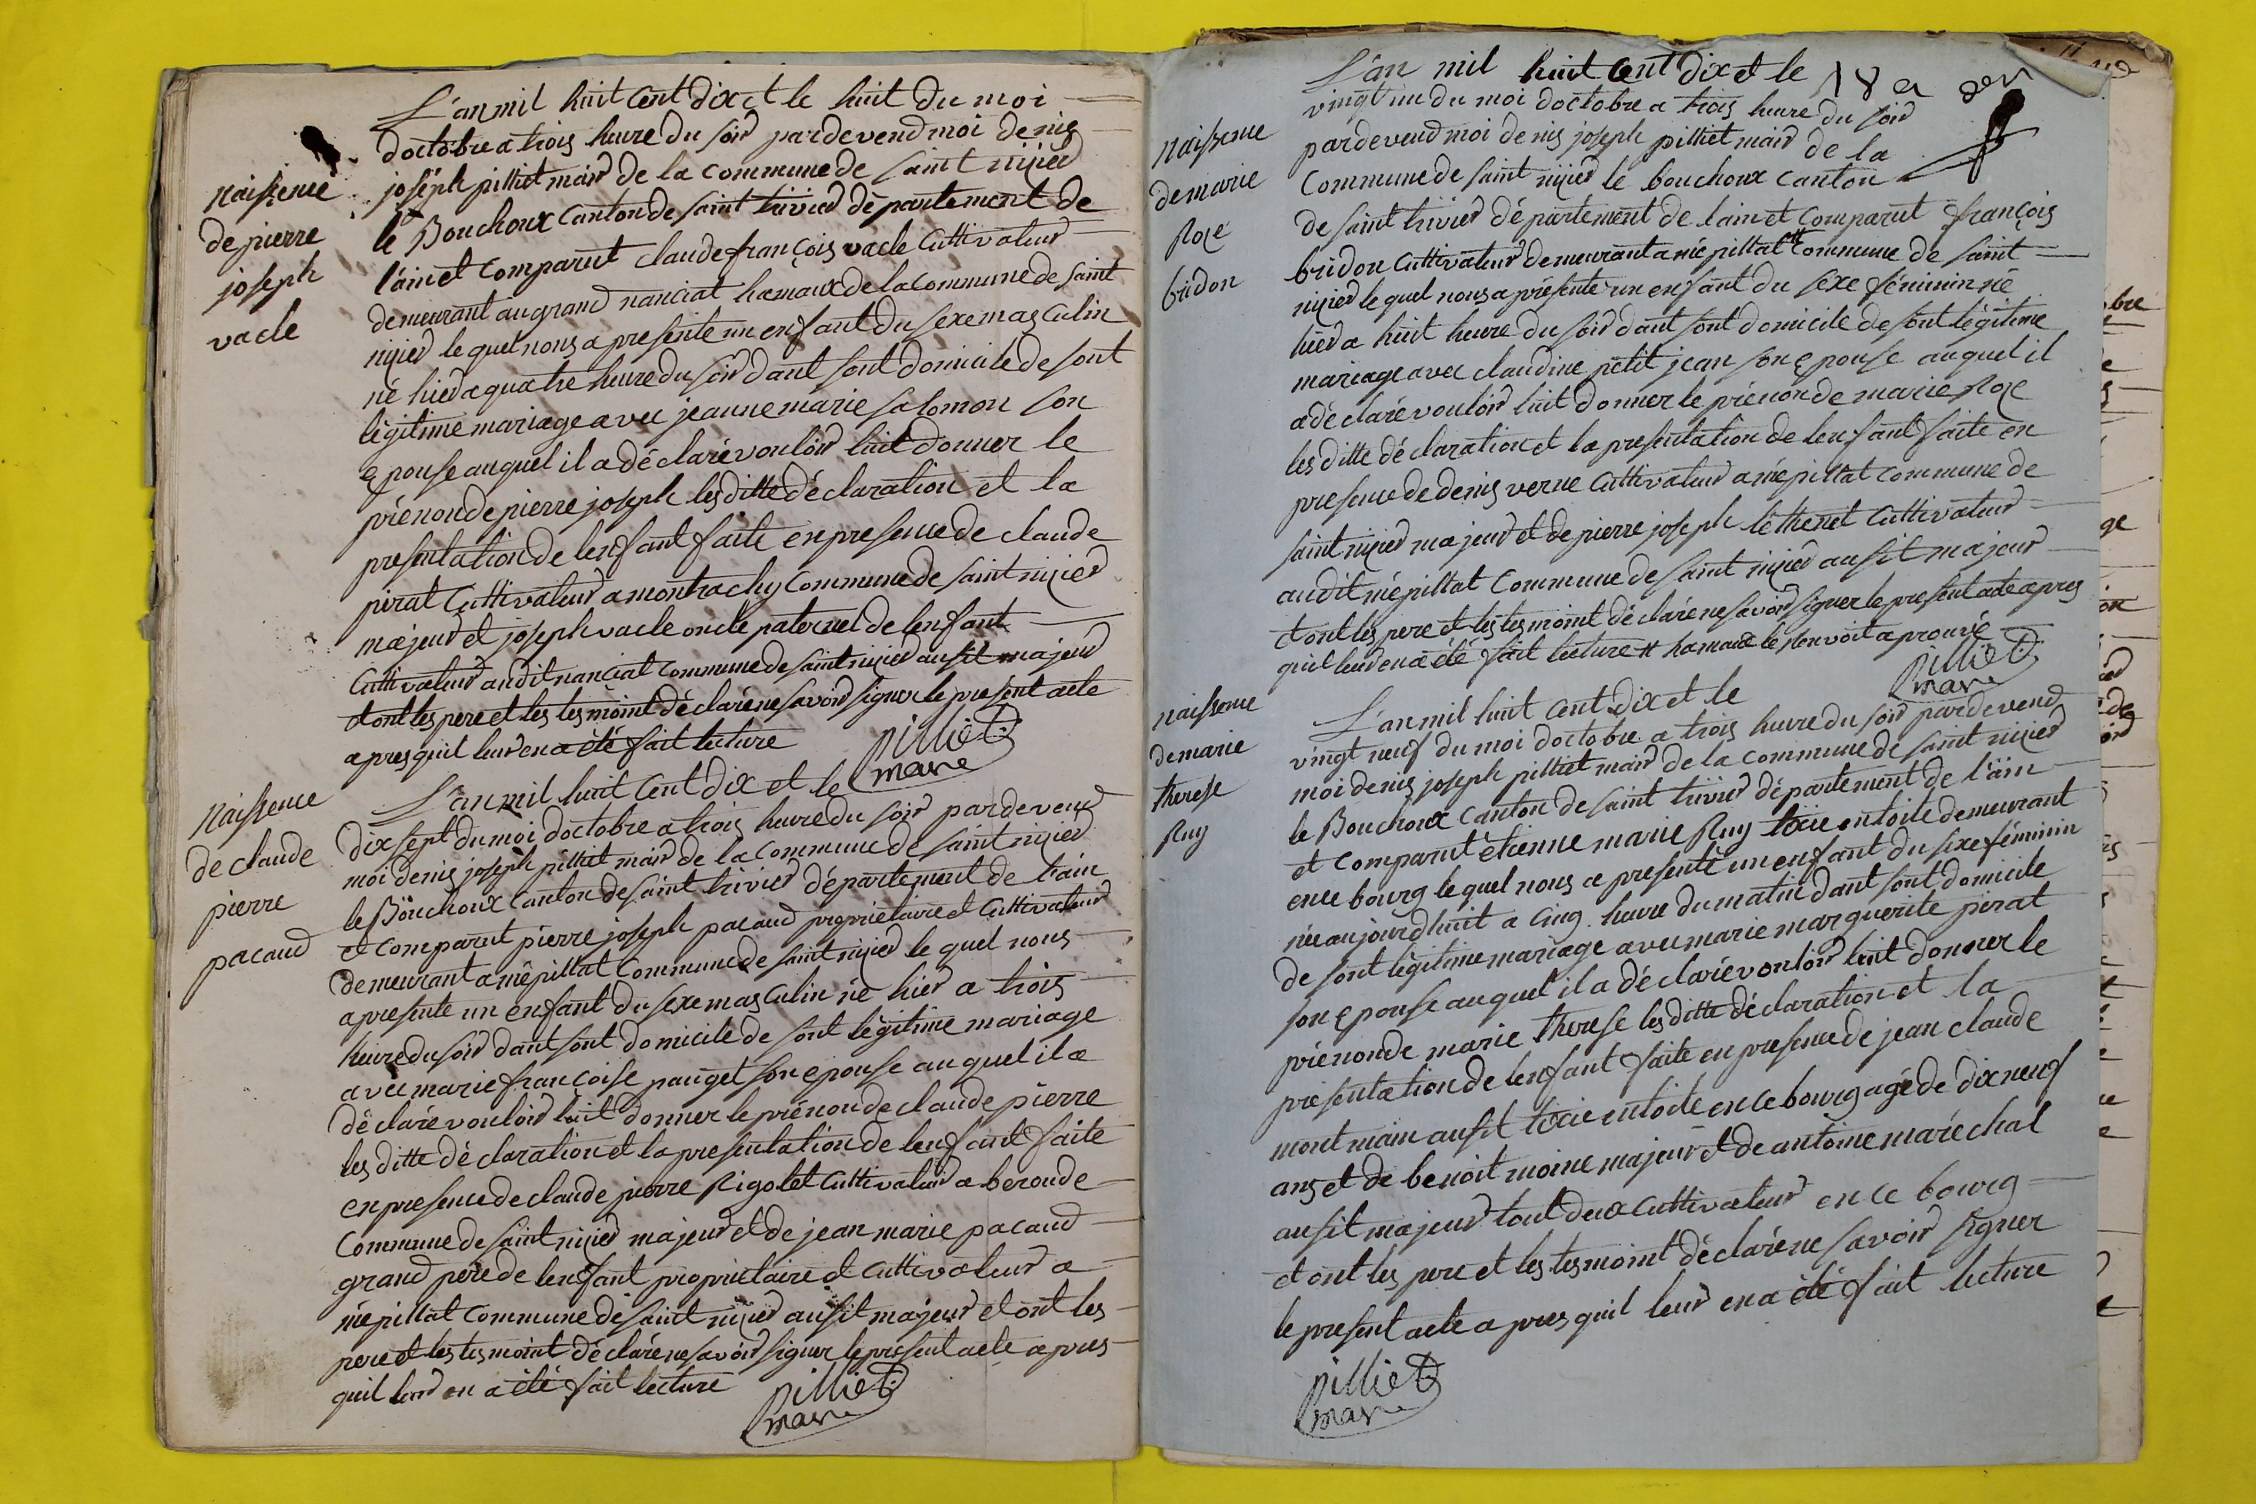 L'an mil huit cent dix et le huit du moi
doctobre a trois heure du soir pardevend moi denis
joseph pilliet mair de la commune de saint nizier
le Bouchoux canton de saint trivier département de
l'ain et comparut claude françois vacle cultivateur
demeurant au grand nanciat hamaux de la commune de saint
nizier le quel nous a presente un enfant du sexe masculin
né hier a quatre heure du soir dant sont domicile de sont
légitime mariage avec jeanne marie salomon son
epouse auquel il a déclaré vouloir luit donner le
prénon de pierre joseph les ditte déclaration et la
presentation de lenfant faite en presence de claude
pirat cultivateur a montrachy commune de saint nizier
majeur et joseph vacle oncle paternel de lenfant
cultivateur audit nanciat commune de saint nizier ausit majeur
et ont les pere et les tesmoint déclaré ne savoir signer le present acte
apres quil leur en a été fait lecture
pilliet
maire
naissence
de pierre
joseph
vacle
L'an mil huit cent dix et le
dix sept du moi doctobre a trois heure du soir pardevend
moi denis joseph pilliet mair de la commune de saint nizier
le Bouchoux canton de saint trivier département de l'ain
et comparut pierre joseph pacaud propriétaire et cultivateur
demeurant a mépillat commune de saint nizier le quel nous
a presente un enfant du sexe masculin né hier a trois
heure du soir dant sont domicile de sont légitime mariage
avec marie françoise pauget son epouse auquel il a
déclaré vouloir luit donner le prénon de claude pierre
les ditte déclaration et la presentation de lenfant faite
en presence de claude pierre Rigolet cultivateur a beronde
commune de saint nizier majeur et de jean marie pacaud
grand pere de lenfant propriétaire et cultivateur a
mépillat commune de saint nizier ausit majeur et ont les
pere et les tesmoint déclaré ne savoir signer le present acte apres
quil leur en a été fait lecture
pilliet
maire
naissence
de claude
pierre
pacaud
L'an mil huit cent dix et le
vingt un du moi doctobre a trois heure du soir
pardevend moi denis joseph pilliet mair de la
commune de saint nizier le bouchoux canton
de saint trivier département de lain et comparut françois
bridon cultivateur demeurant a mépillat # commune de saint
nizier le quel nous a présente un enfant du sexe féminin né
hier a huit heure du soir dant sont domicile de sont légitime
mariage avec claudine petit jean son epouse auquel il
a déclaré vouloir luit donner le prénon de marie Roze
les ditte déclaration et la presentation de lenfant faite en
presence de denis verne cultivateur a mépillat commune de
saint nizier majeur et de pierre joseph léthenet cultivateur
audit mépillat commune de saint nizier ausit majeur
et ont les pere et les tesmoint déclaré ne savoir signer le present acte apres
quil leur en a été fait lecture # hamaux le renvoit aprouvé
pilliet
maire
naissence
de marie
Roze
bridon
L'an mil huit cent dix et le
vingt neuf du moi doctobre a trois heure du soir pardevend
moi denis joseph pilliet mair de la commune de saint nizier
le Bouchoux canton de saint trivier département de l'ain
et comparut étienne marie Ruy tixie en toile demeurant
en ce bourg le quel nous a presente un enfant du sixe féminin
née aujourdhuit a cinq heure du matin dant sont domicile
de sont légitime mariage avec marie marguerite pirat
son epouse auquel il a déclaré vouloir luit donner le
prénon de marie therese les ditte déclaration et la
presentation de lenfant faite en presence de jean claude
montmain ausit tixie en toile en ce bourg agé de dix neuf
ans et de benoit moine majeur et de antoine maréchal
ausit majeur tout deux cultivateur en ce bourg
et ont les pere et les tesmoint déclaré ne savoir signer
le present acte apres quil leur en a été fait lecture
pilliet
maire
naissence
de marie
therese
Ruy